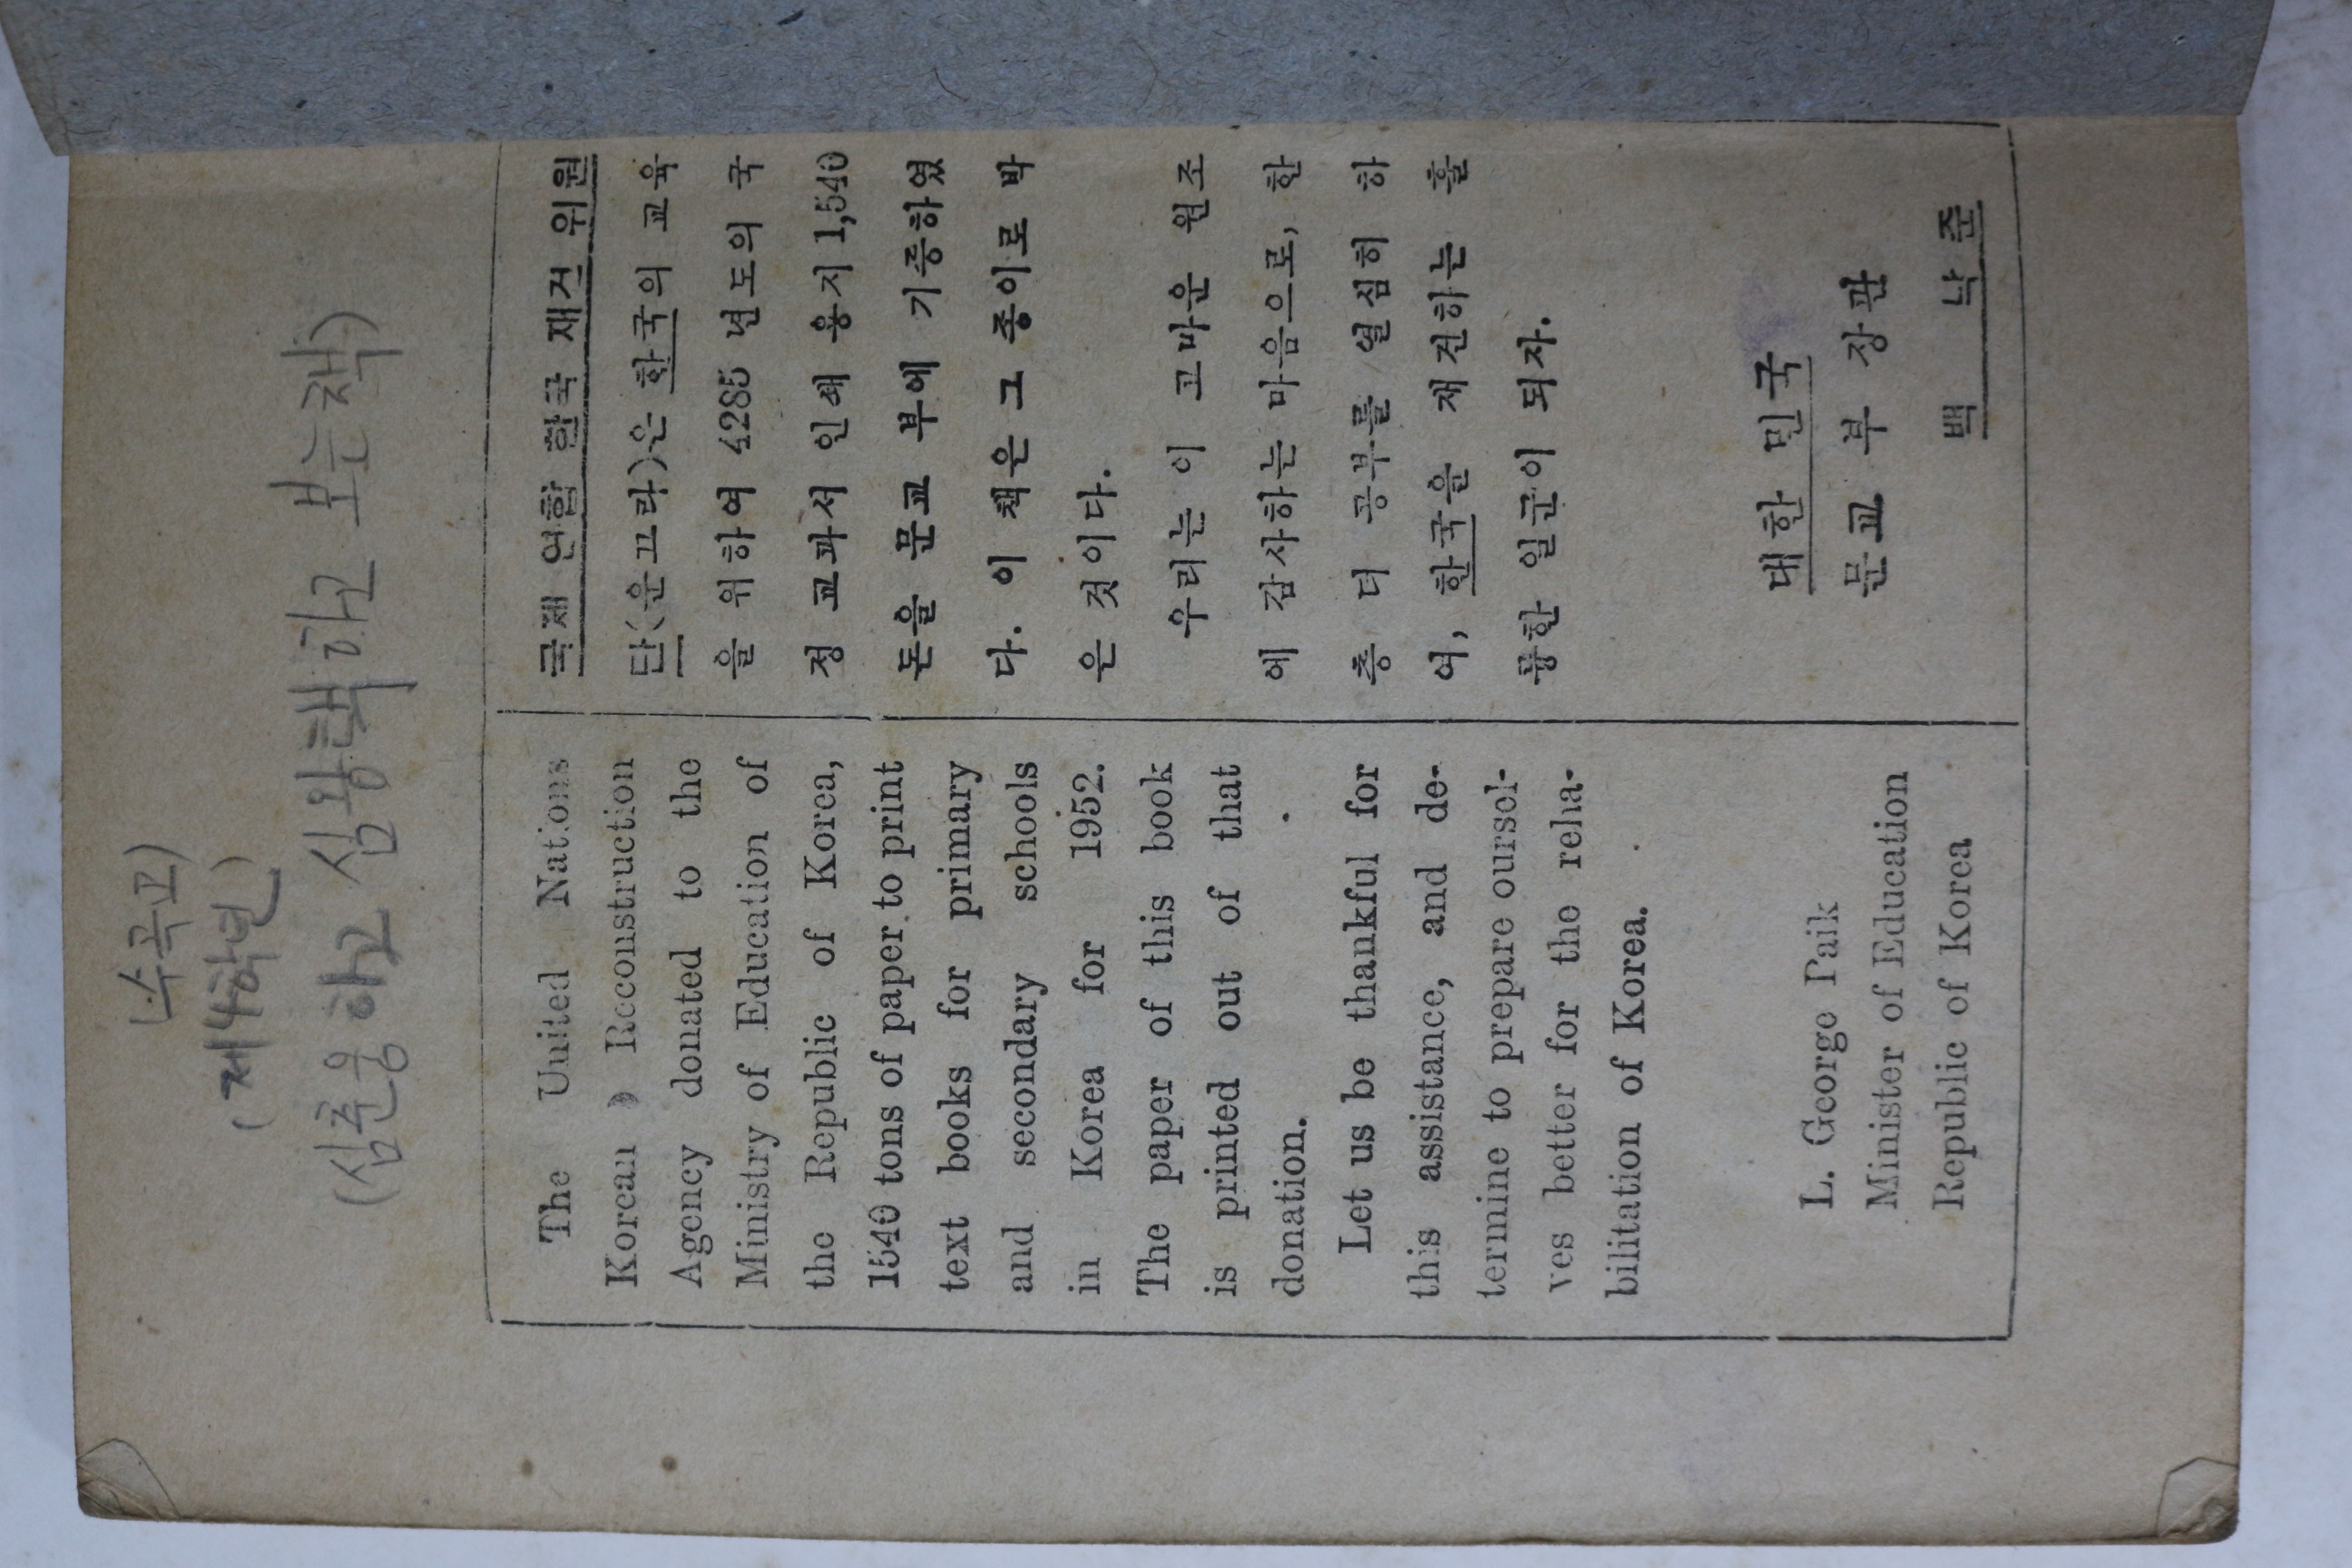 (수곡교)
(제4학년)
(심춘웅하고 심왕택하고 보는책)
The United Nations
Korean Reconstruction
Agency donated to the
Ministry of Education of
the Republic of Korea,
1540 tons of paper to print
text books for primary
and secondary schools
in Korea for 1952.
The paper of this book
is printed out of that
donation.
Let us be thankful for
this assistance, and de-
termine to prepare oursel-
ves better for the reha-
bilitation of Korea.
L. George Paik
Minister of Education
Republic of Korea
국제 연합 한국 재건 위원
단(운끄라)은 한국의 교육
을 위하여 4285 년도의 국
정 교과서 인쇄 용지 1,540
돈을 문교 부에 기증하였
다. 이 책은 그 종이로 박
은 것이다.
우리는 이 고마운 원조
에 감사하는 마음으로, 한
층 더 공부를 열심히 하
여, 한국을 재건하는 훌
륭한 일군이 되자.
대한 민국
문교 부 장관
백 낙 준